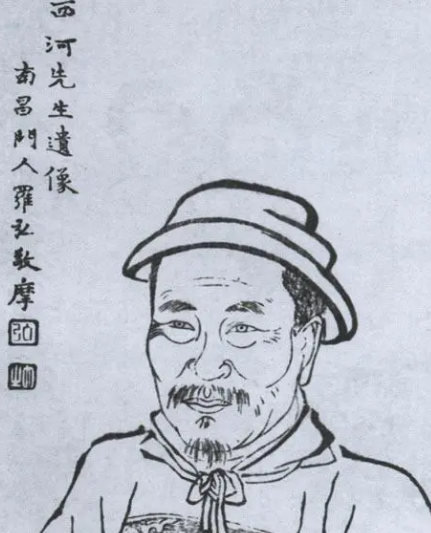 西河先生遺像
南昌門人羅弘敬摩